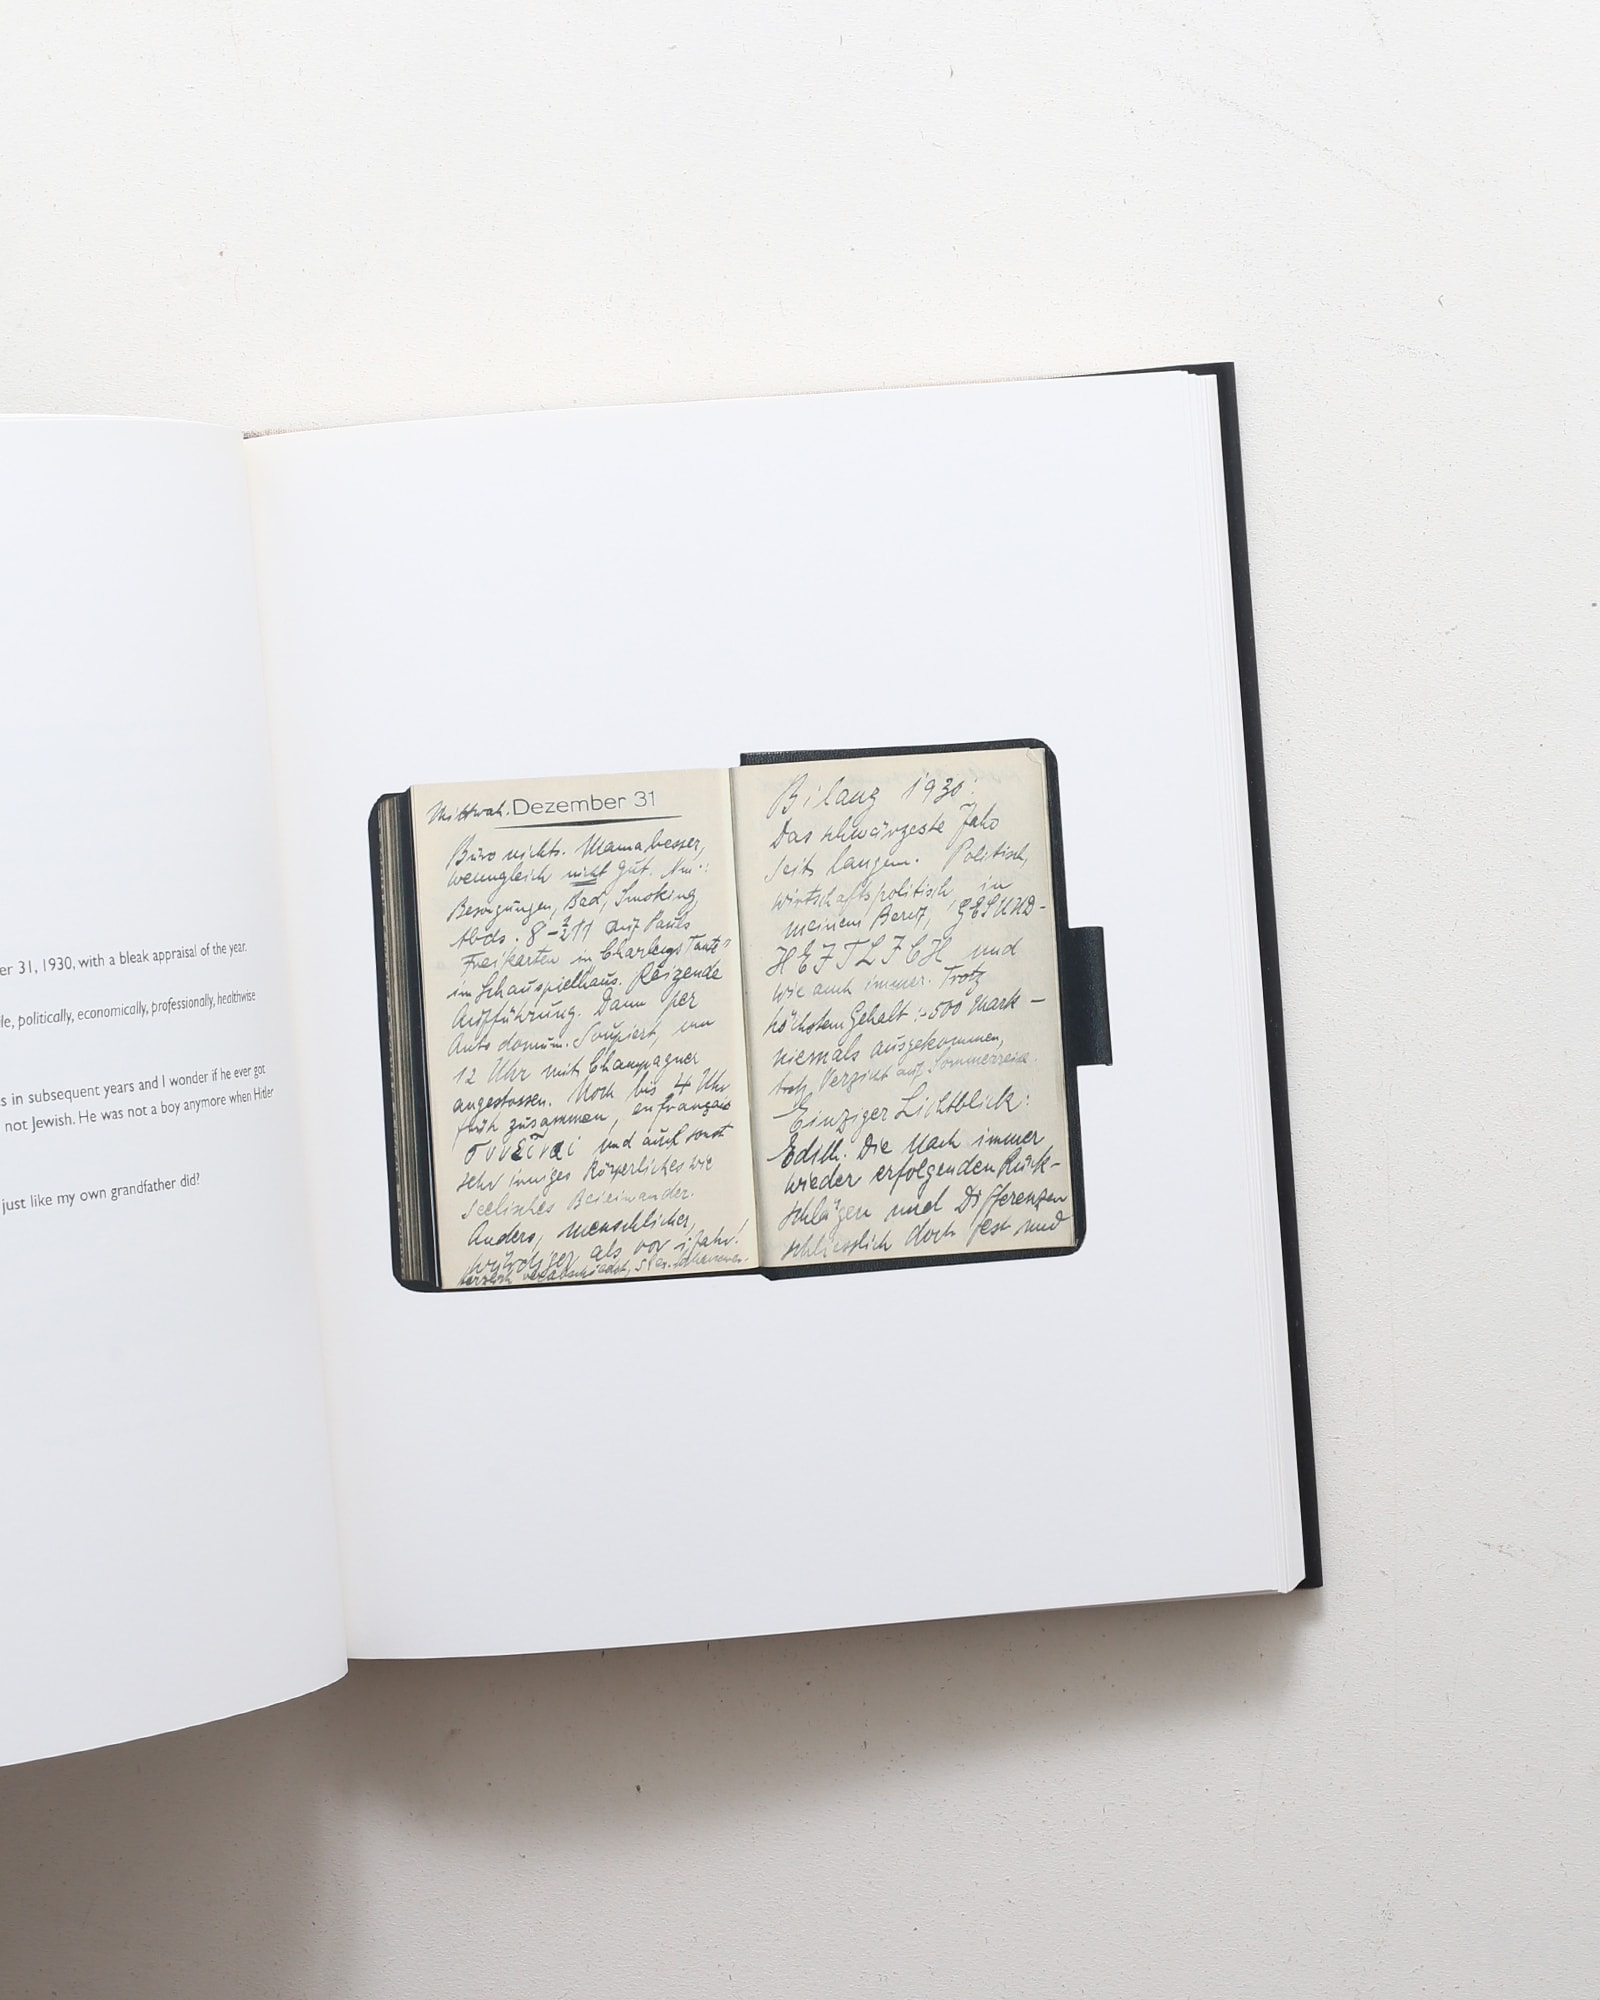 er 31, 1930, with a bleak appraisal of the year.
le, politically, economically, professionally, healthwise
s in subsequent years and I wonder if he ever got
not Jewish. He was not a boy anymore when Hitler
just like my own grandfather did?
Mittwoch. Dezember 31
Büro nichts. Mama besser,
wenngleich nicht gut.
Besorgungen, Bad, Smoking,
Abds. 8-½11 auf Pauls
Freikarten in Charleys Tante
im Schauspielhaus. Reizende
Aufführung. Dann per
Auto domum. Soupiert, um
12 Uhr mit Champagner
angestossen. Noch bis 4 Uhr
früh zusammen, en français
und auch sonst
sehr inniges Körperliches wie
seelisches Beieinander.
Anders, menschlicher,
würdiger als vor 1 Jahr!
herzlich verabschiedet,
Bilanz 1930:
Das schwärzeste Jahr
seit langem. Politisch,
wirtschaftspolitisch, in
meinem Beruf, GESUND-
HEITLICH und
wie auch immer. Trotz
höchstem Gehalt :-500 Mark -
niemals ausgekommen,
trotz Verzicht auf Sommerreise.
Einziger Lichtblick:
Edith. Die nach immer
wieder erfolgenden Rück-
schlägen und Differenzen
schliesslich doch fest und